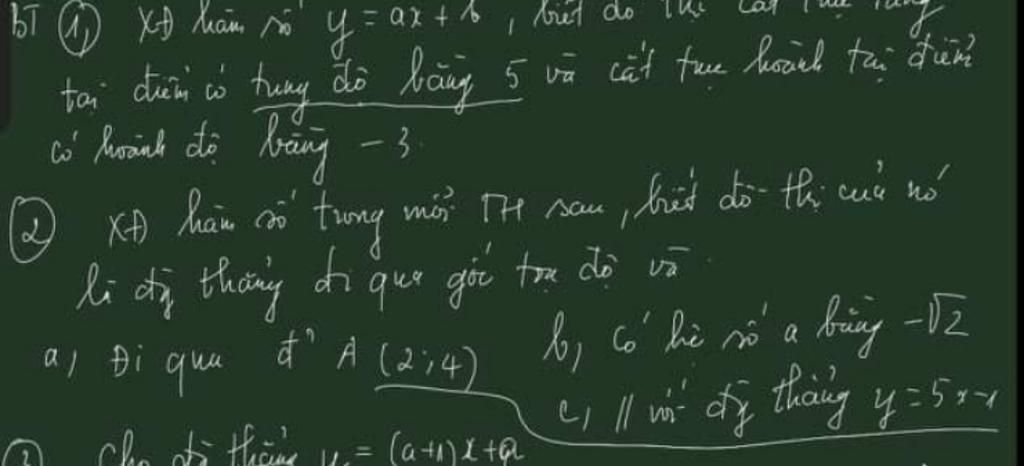 BT ① XĐ hàm số y = ax + b, biết đồ thị cắt trục tung
tại điểm có tung độ bằng 5 và cắt trục hoành tại điểm
có hoành độ bằng -3.
② XĐ hàm số trong mỗi TH sau, biết đồ thị của nó
là đg thẳng đi qua gốc tọa độ và
a, Đi qua đ' A (2;4)
b, Có hệ số a bằng -√2
c, // với đg thẳng y = 5x-1
③ Cho đg thẳng y = (a+1)x+a